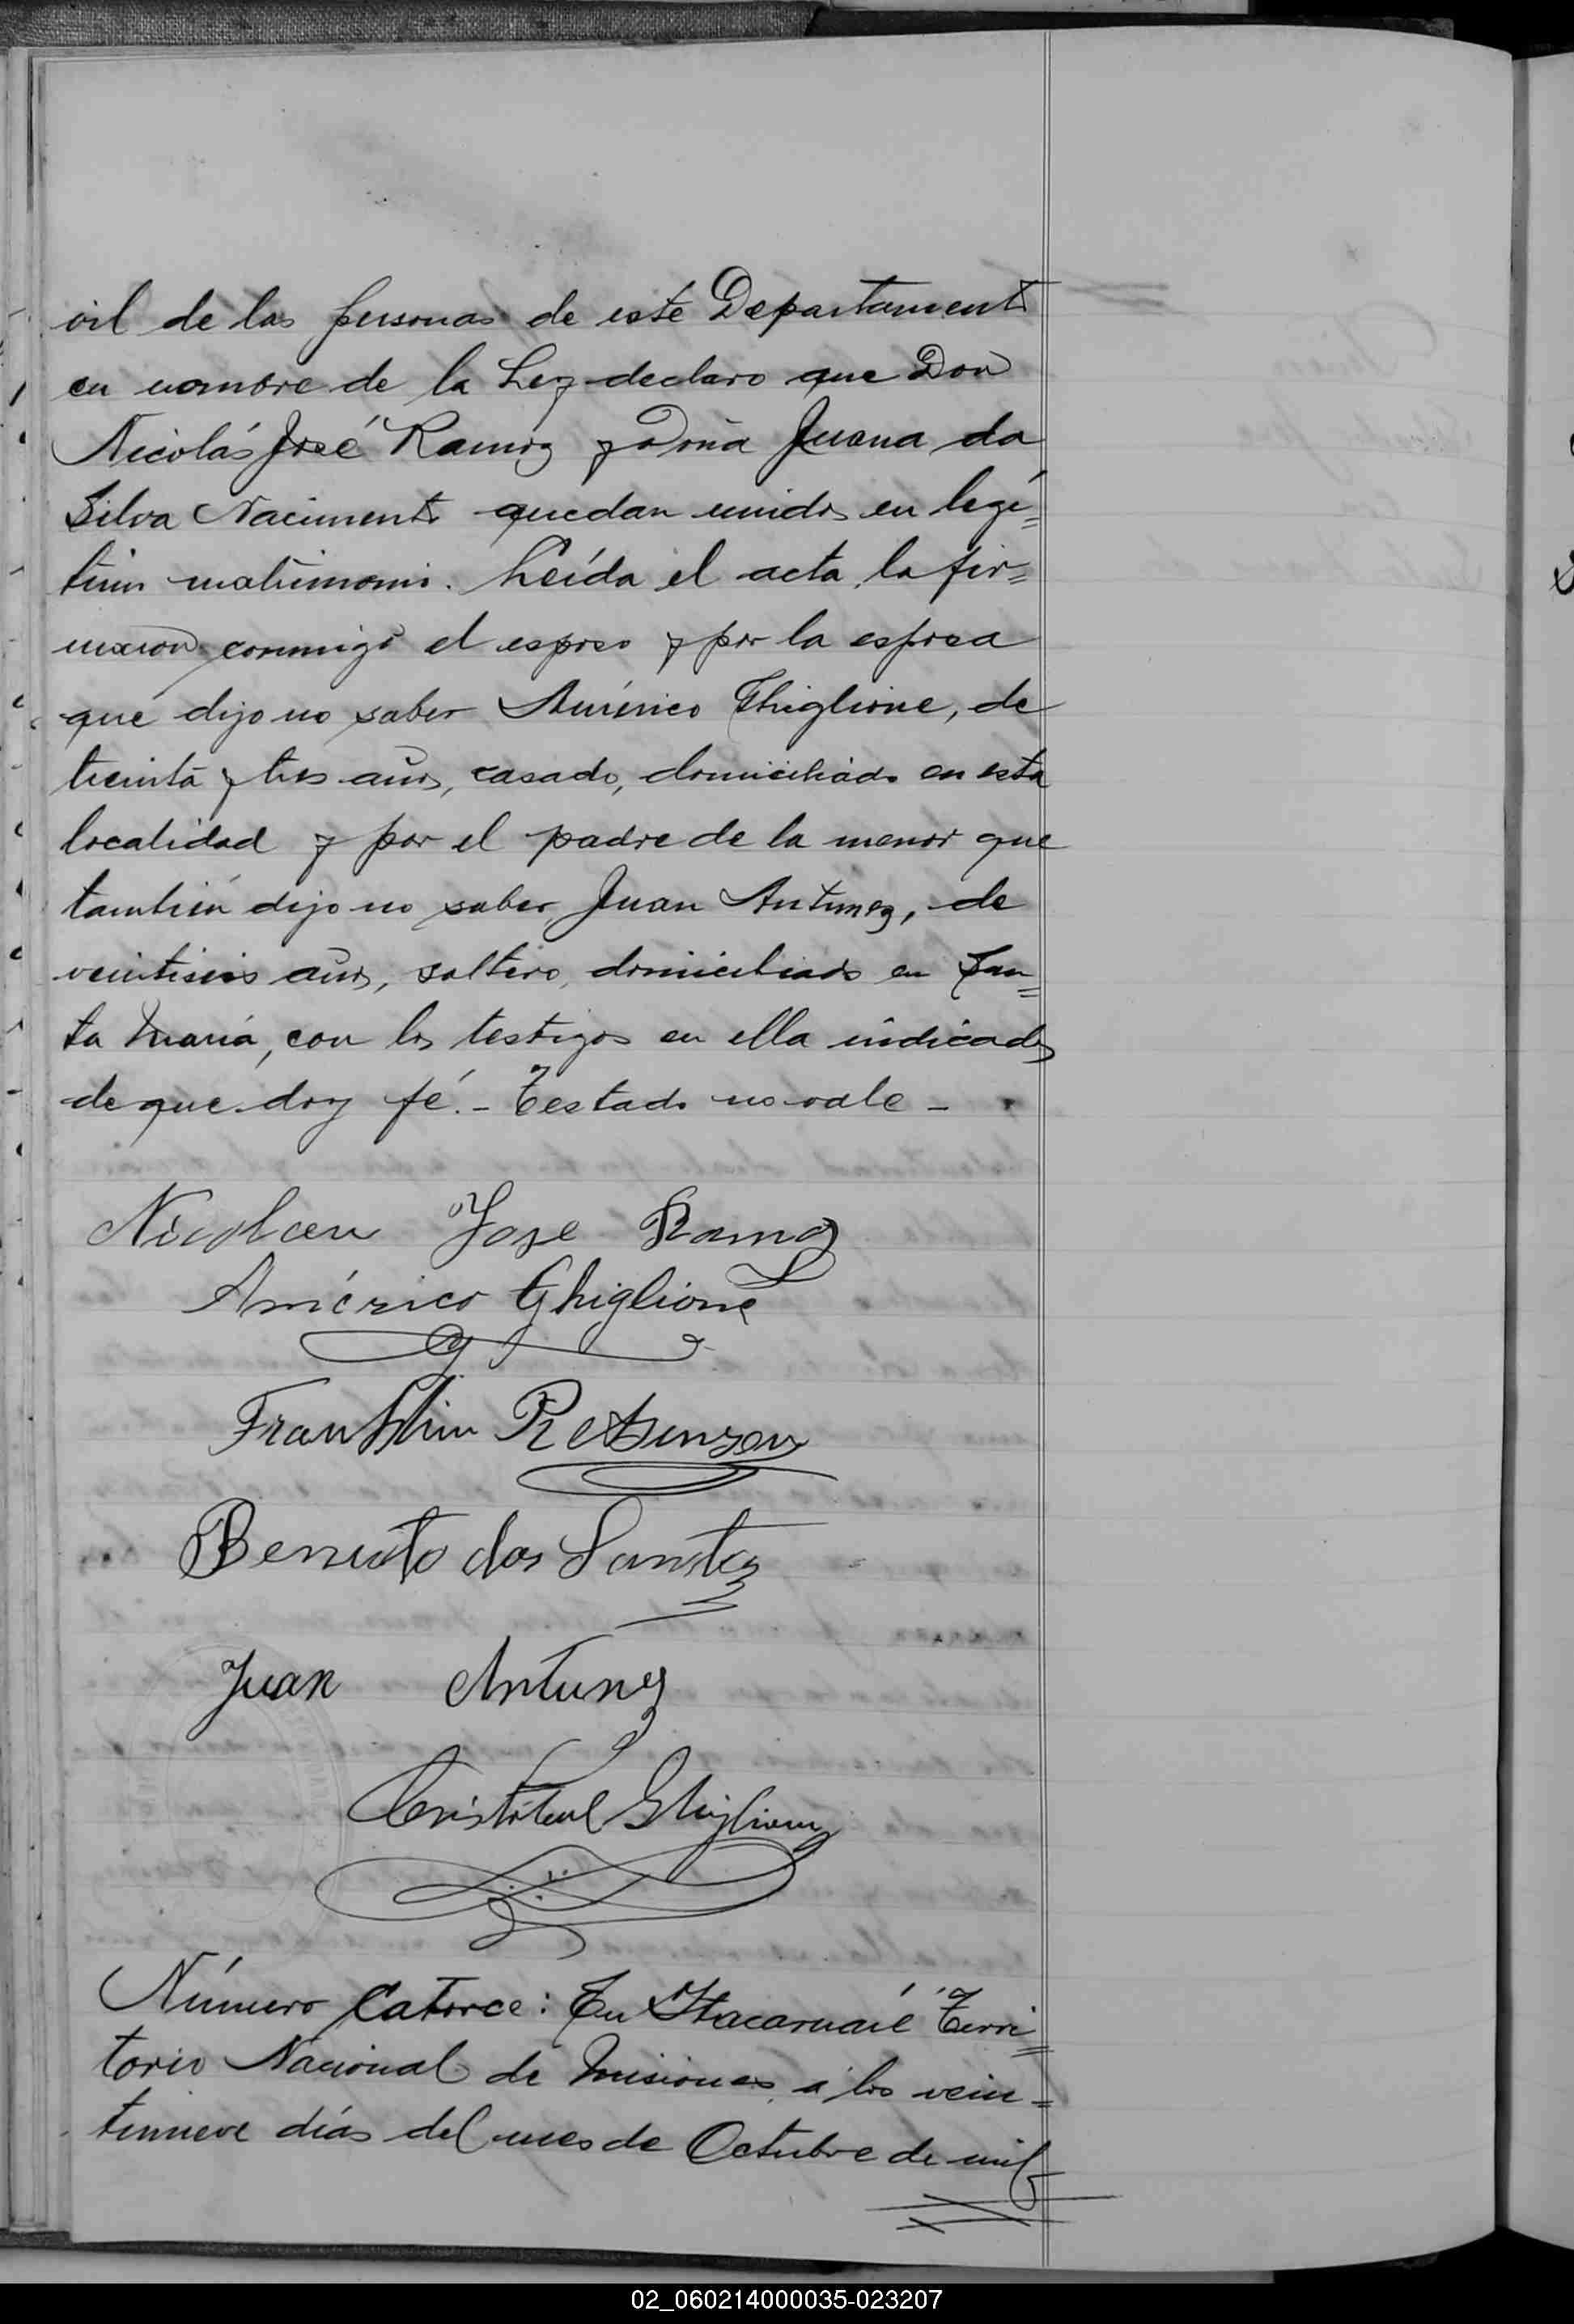 vil de las personas de este Departamento
en nombre de la Ley declaro que Don
Nicolás José Ramoz y Doña Juana da
Silva Nacimento quedan unidos en legí=
timo matrimonio. Leída el acta, la fir=
maron conmigo el esposo y por la esposa
que dijo no saber Américo Ghiglione, de
treinta y tres años, casado, domiciliado en esta
localidad y por el padre de la menor que
también dijo no saber, Juan Antunez, de
veintiseis años, soltero, domiciliado en San=
ta María, con los testigos en ella indicados
de que doy fé. - Testado no vale -
José Ramoz
Américo Ghiglione
Franklin
Benito dos Santos
Juan Antunez
Cristóbal Ghiglione
Número Catorce: En Itacaruaré Terri=
torio Nacional de Misiones, á los vein=
tinueve días del mes de Octubre de mil
02_060214000035-023207